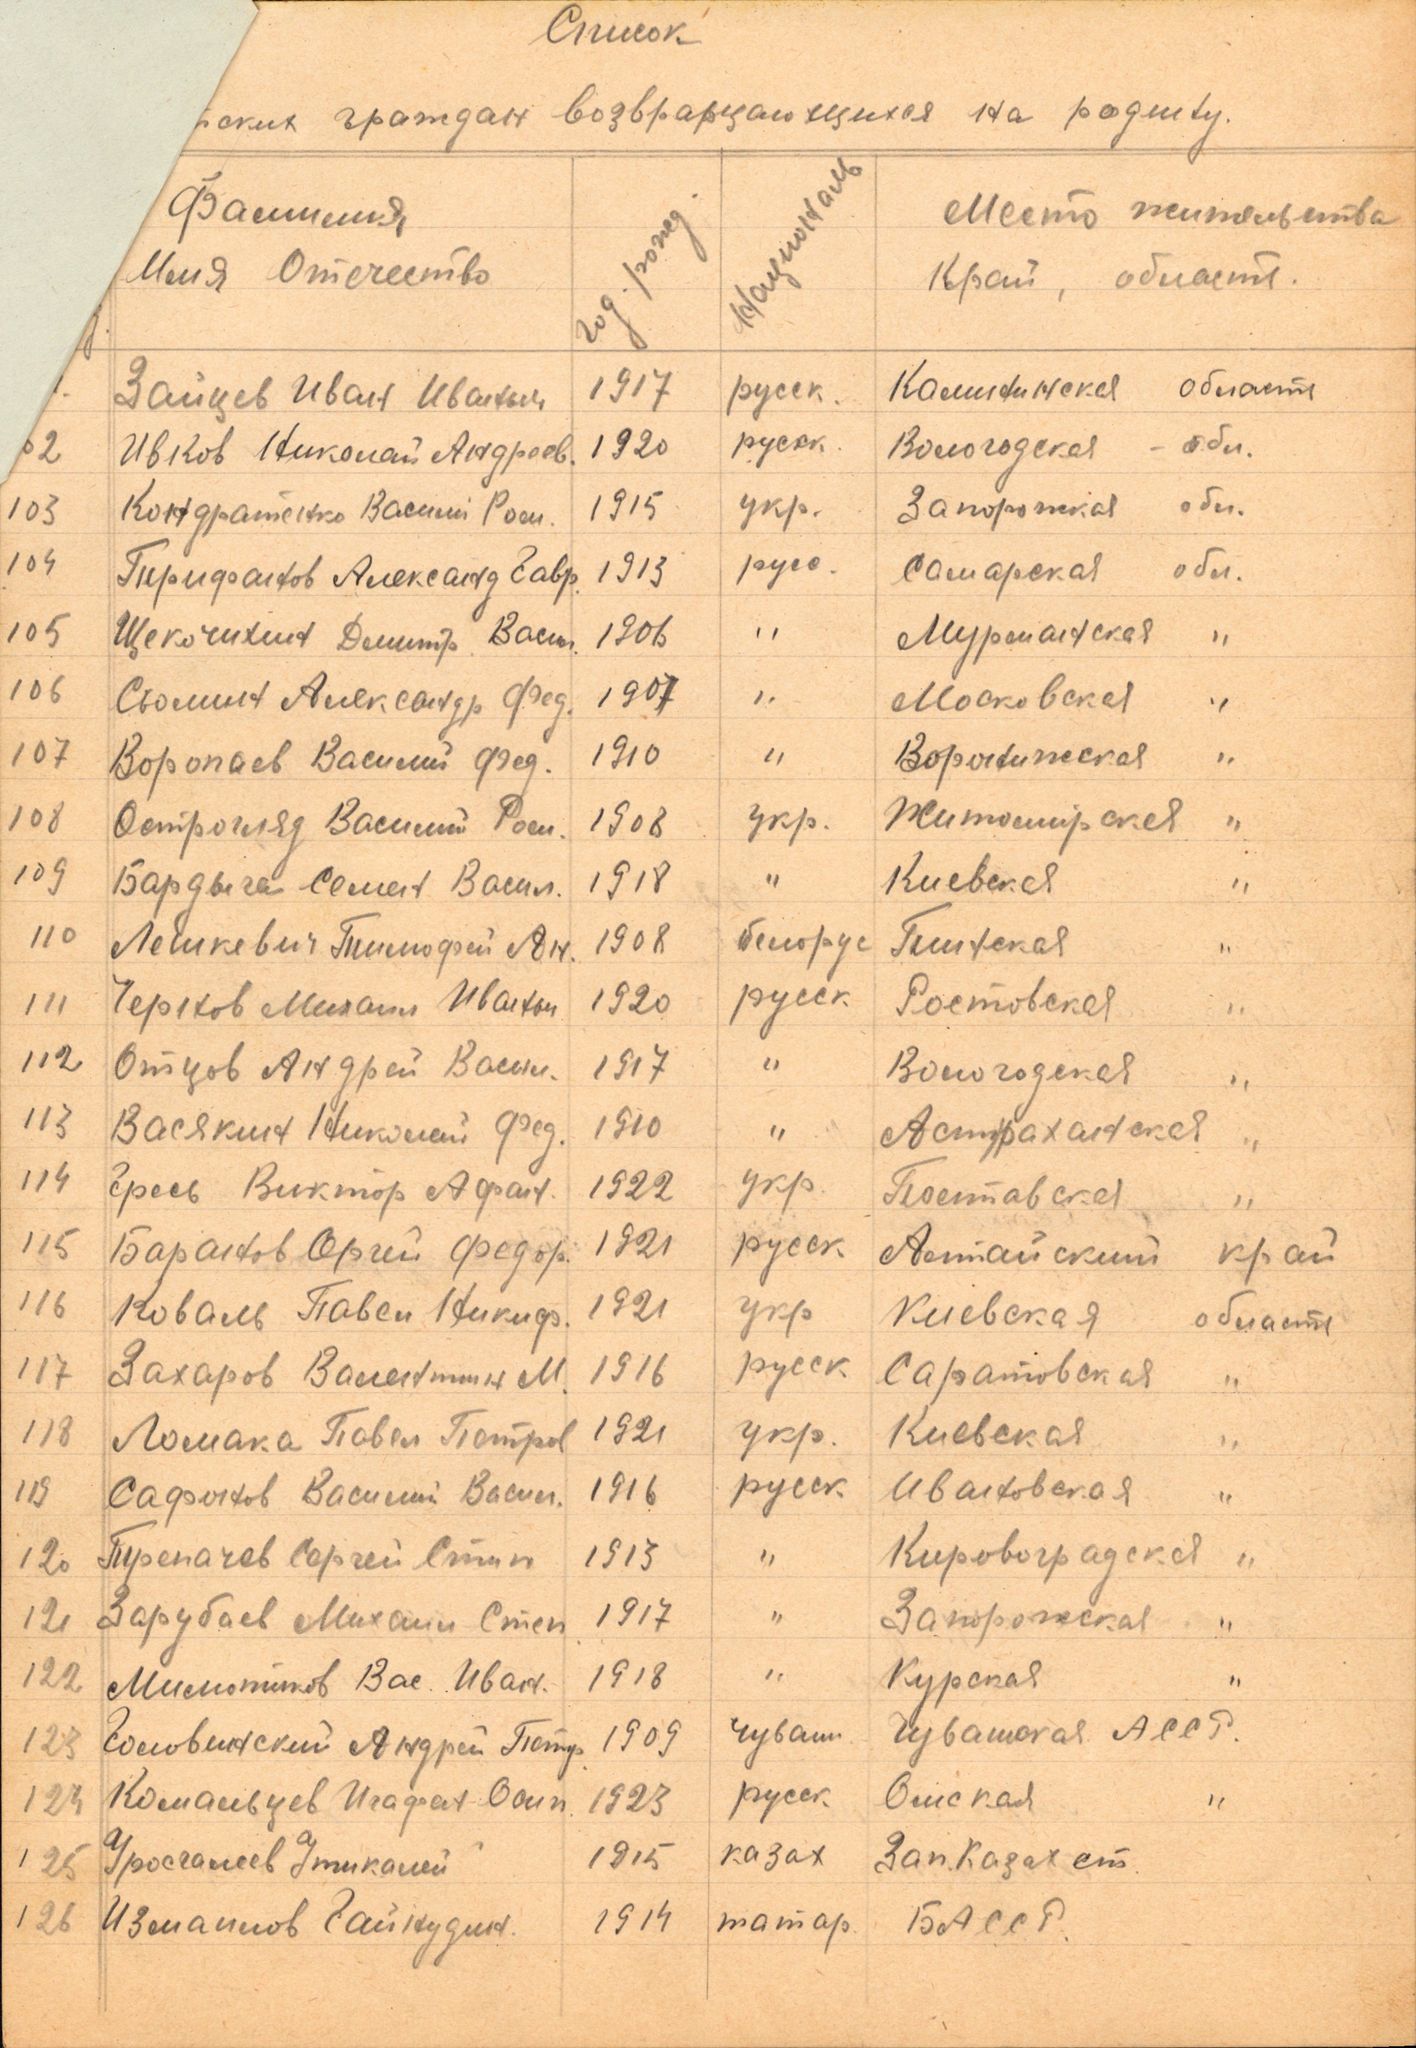 Список
ских граждан возвращающихся на родину.
Фамилия Имя Отчество год. рожд. Националь Место жительства Край, область.
Зайцев Иван Иваныч 1917 русск. Калининская область
02 Ивков Николай Андреев. 1920 русск. Вологодская - обл.
103 Кондратенко Василий Ром. 1915 укр. Запорожская обл.
104 Трифанов Александ Гавр. 1913 русс. Самарская обл.
105 Щекочихин Дмитр. Васил. 1906 " Мурманская "
106 Сюмин Александр Фед. 1907 " Московская "
107 Воропаев Василий Фед. 1910 " Воронижская "
108 Острогляд Василий Ром. 1908 укр. Житомирская "
109 Бардыга Семен Васил. 1918 " Киевская "
110 Лешкевич Тимофей Ан. 1908 белорус Пинская "
111 Чернов Михаил Иваныч 1920 русск Ростовская "
112 Отцов Андрей Васил. 1917 " Вологодская "
113 Васякин Николай Фед. 1910 " Астраханская "
114 Виктор Афан. 1922 укр. Полтавская "
115 Баранов Сргей Федор. 1921 русск Алтайский край
116 Коваль Павел Никиф. 1921 укр Киевская область
117 Захаров Валентин М. 1916 русск Саратовская "
118 Ломака Павел Петров 1921 укр. Киевская "
119 Сафонов Василий Васил. 1916 русск Ивановская "
120 Сергей 1913 " Кировоградская "
121 Зарубаев Михаил Степ 1917 " Запорожская "
122 Вас. Иван. 1918 " Курская "
123 Головинский Андрей Петр. 1909 чуваш. Чувашская АССР.
124 Осип. 1923 русск Омская "
125 1915 казах Зап. Казахст.
126 Измаилов Гайнудин. 1914 татар. БАССР.